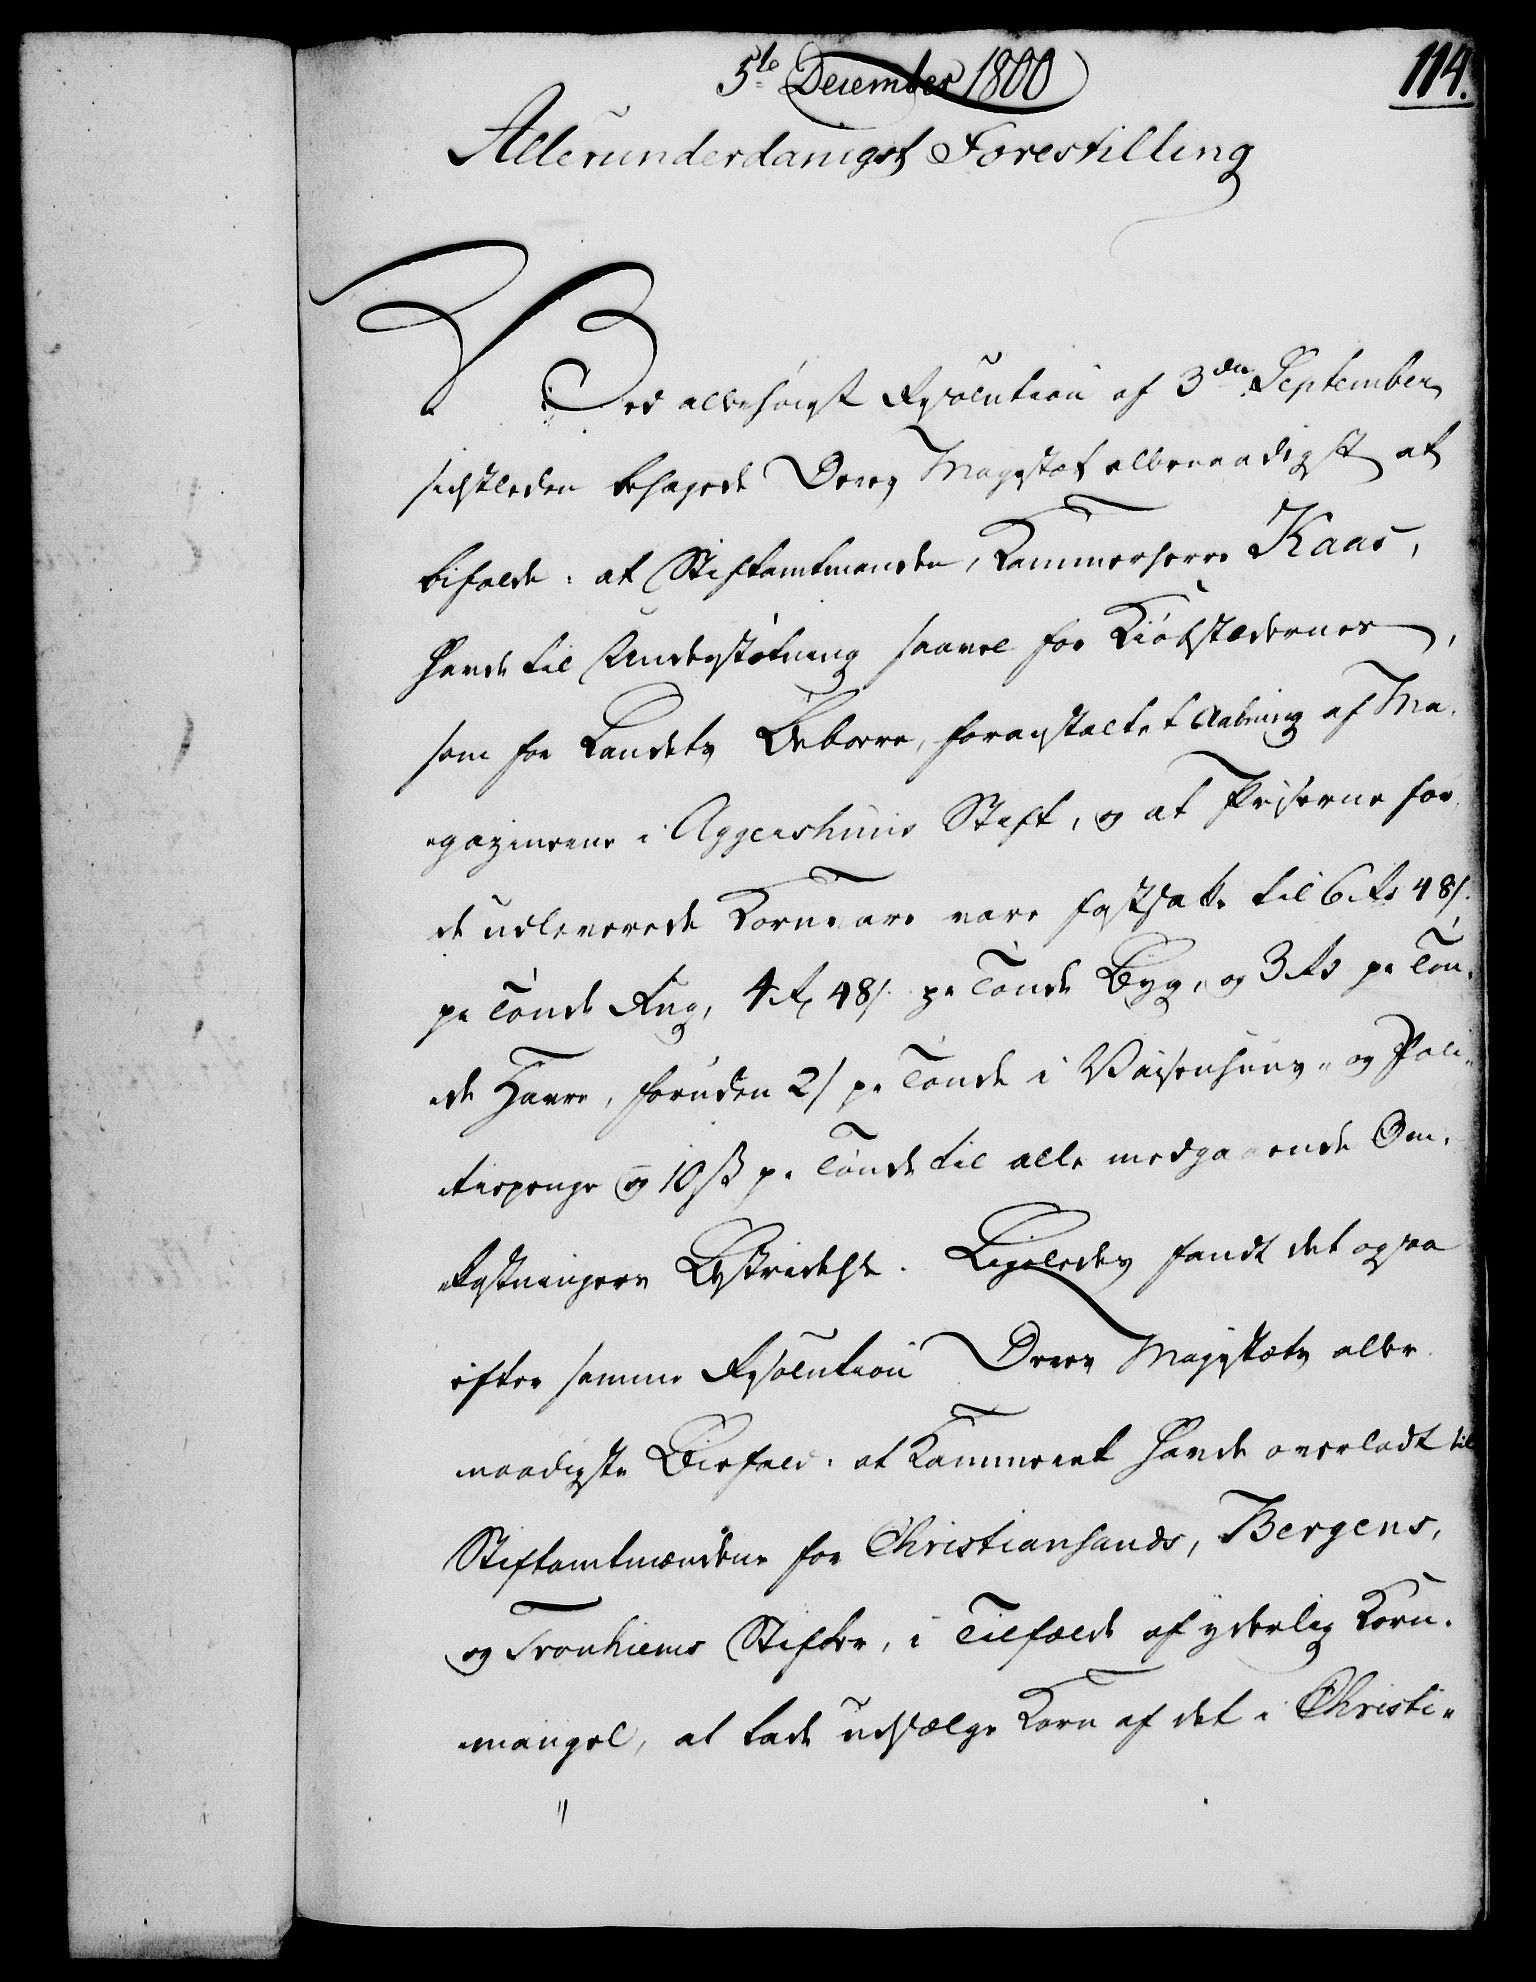 5te December 1800
114.
Allerunderdanigst Forestilling
Ved allerhøiest Resolution af 3den September
sidstleden behagede Deres Majestæt allernaadigst at
bifalde: at Stiftamtmanden, Kammerherre Kaas,
havde til Understøtning saavel for Kiøbstædernes,
som for Landets Beboere, foranstaltet Aabning af Ma-
gazinerne i Aggershuus Stift, og at Priserne for
de udleverede Kornvare vare fastsatte til 6 Rd 48 s.
pr Tønde Rug, 4 Rd 48 s. pr Tønde Byg, og 3 Rd pr Tøn-
de Havre, foruden 2 s pr Tønde i Vaisenhuus- og Poli-
tiepenge og 10 s pr Tønde til alle medgaaende Om-
kostningers Bestridelse. Ligeledes fandt det ogsaa
efter samme Resolution Deres Majestæts aller-
naadigste Biefald: at Kammeret havde overladt til
Stiftamtmændene for Christiansands, Bergens,
og Tronhiems Stifter, i Tilfælde af yderlig Korn-
mangel, at lade udsælge Korn af det i Christi-